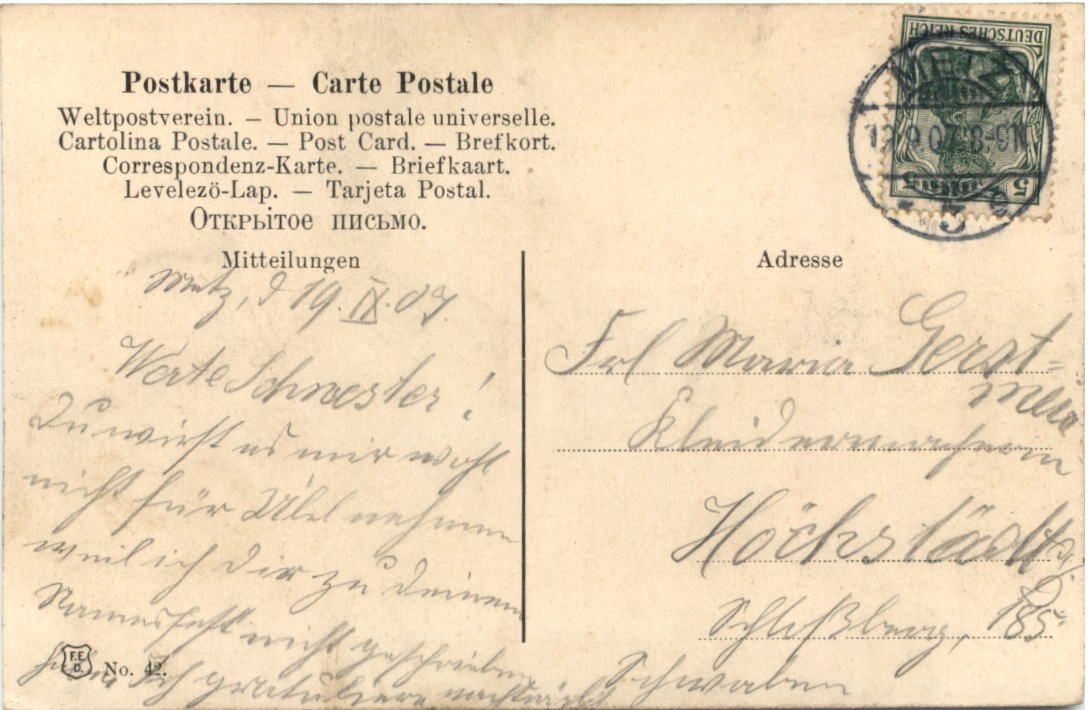 Postkarte — Carte Postale
Weltpostverein. — Union postale universelle.
Cartolina Postale. — Post Card. — Brefkort.
Correspondenz-Karte. — Briefkaart.
Levelezö-Lap. — Tarjeta Postal.
Открьітое письмо.
Mitteilungen
Metz, d 19. IX. 07.
Werte Schwester!
Du wirst es mir wohl
nicht für Übel nehmen
weil ich Dir zu deinem
Namensfest nicht geschrieben
habe. Ich gratuliere nachträglich
F.E.D.
No. 42.
DEUTSCHES REICH
5 5
METZ
19.9.07. 8-9N
* 5 e
Adresse
Frl Maria Gerst-
meier
Kleidermacherin
Höchstädt a/
Schleßberg, 185
Schwaben